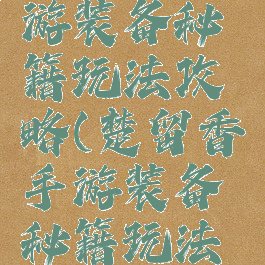 游装备秘
籍玩法攻
略(楚留香
手游装备
秘籍玩法